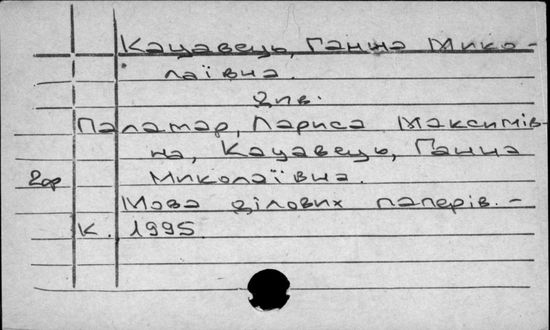 Кацавець, Ганна Мико-
лаївна.
див.
Паламар, Лариса Максимів-
на, Кацавець, Ганна
2ор Миколаївна.
Мова ділових паперів. -
К. 1995